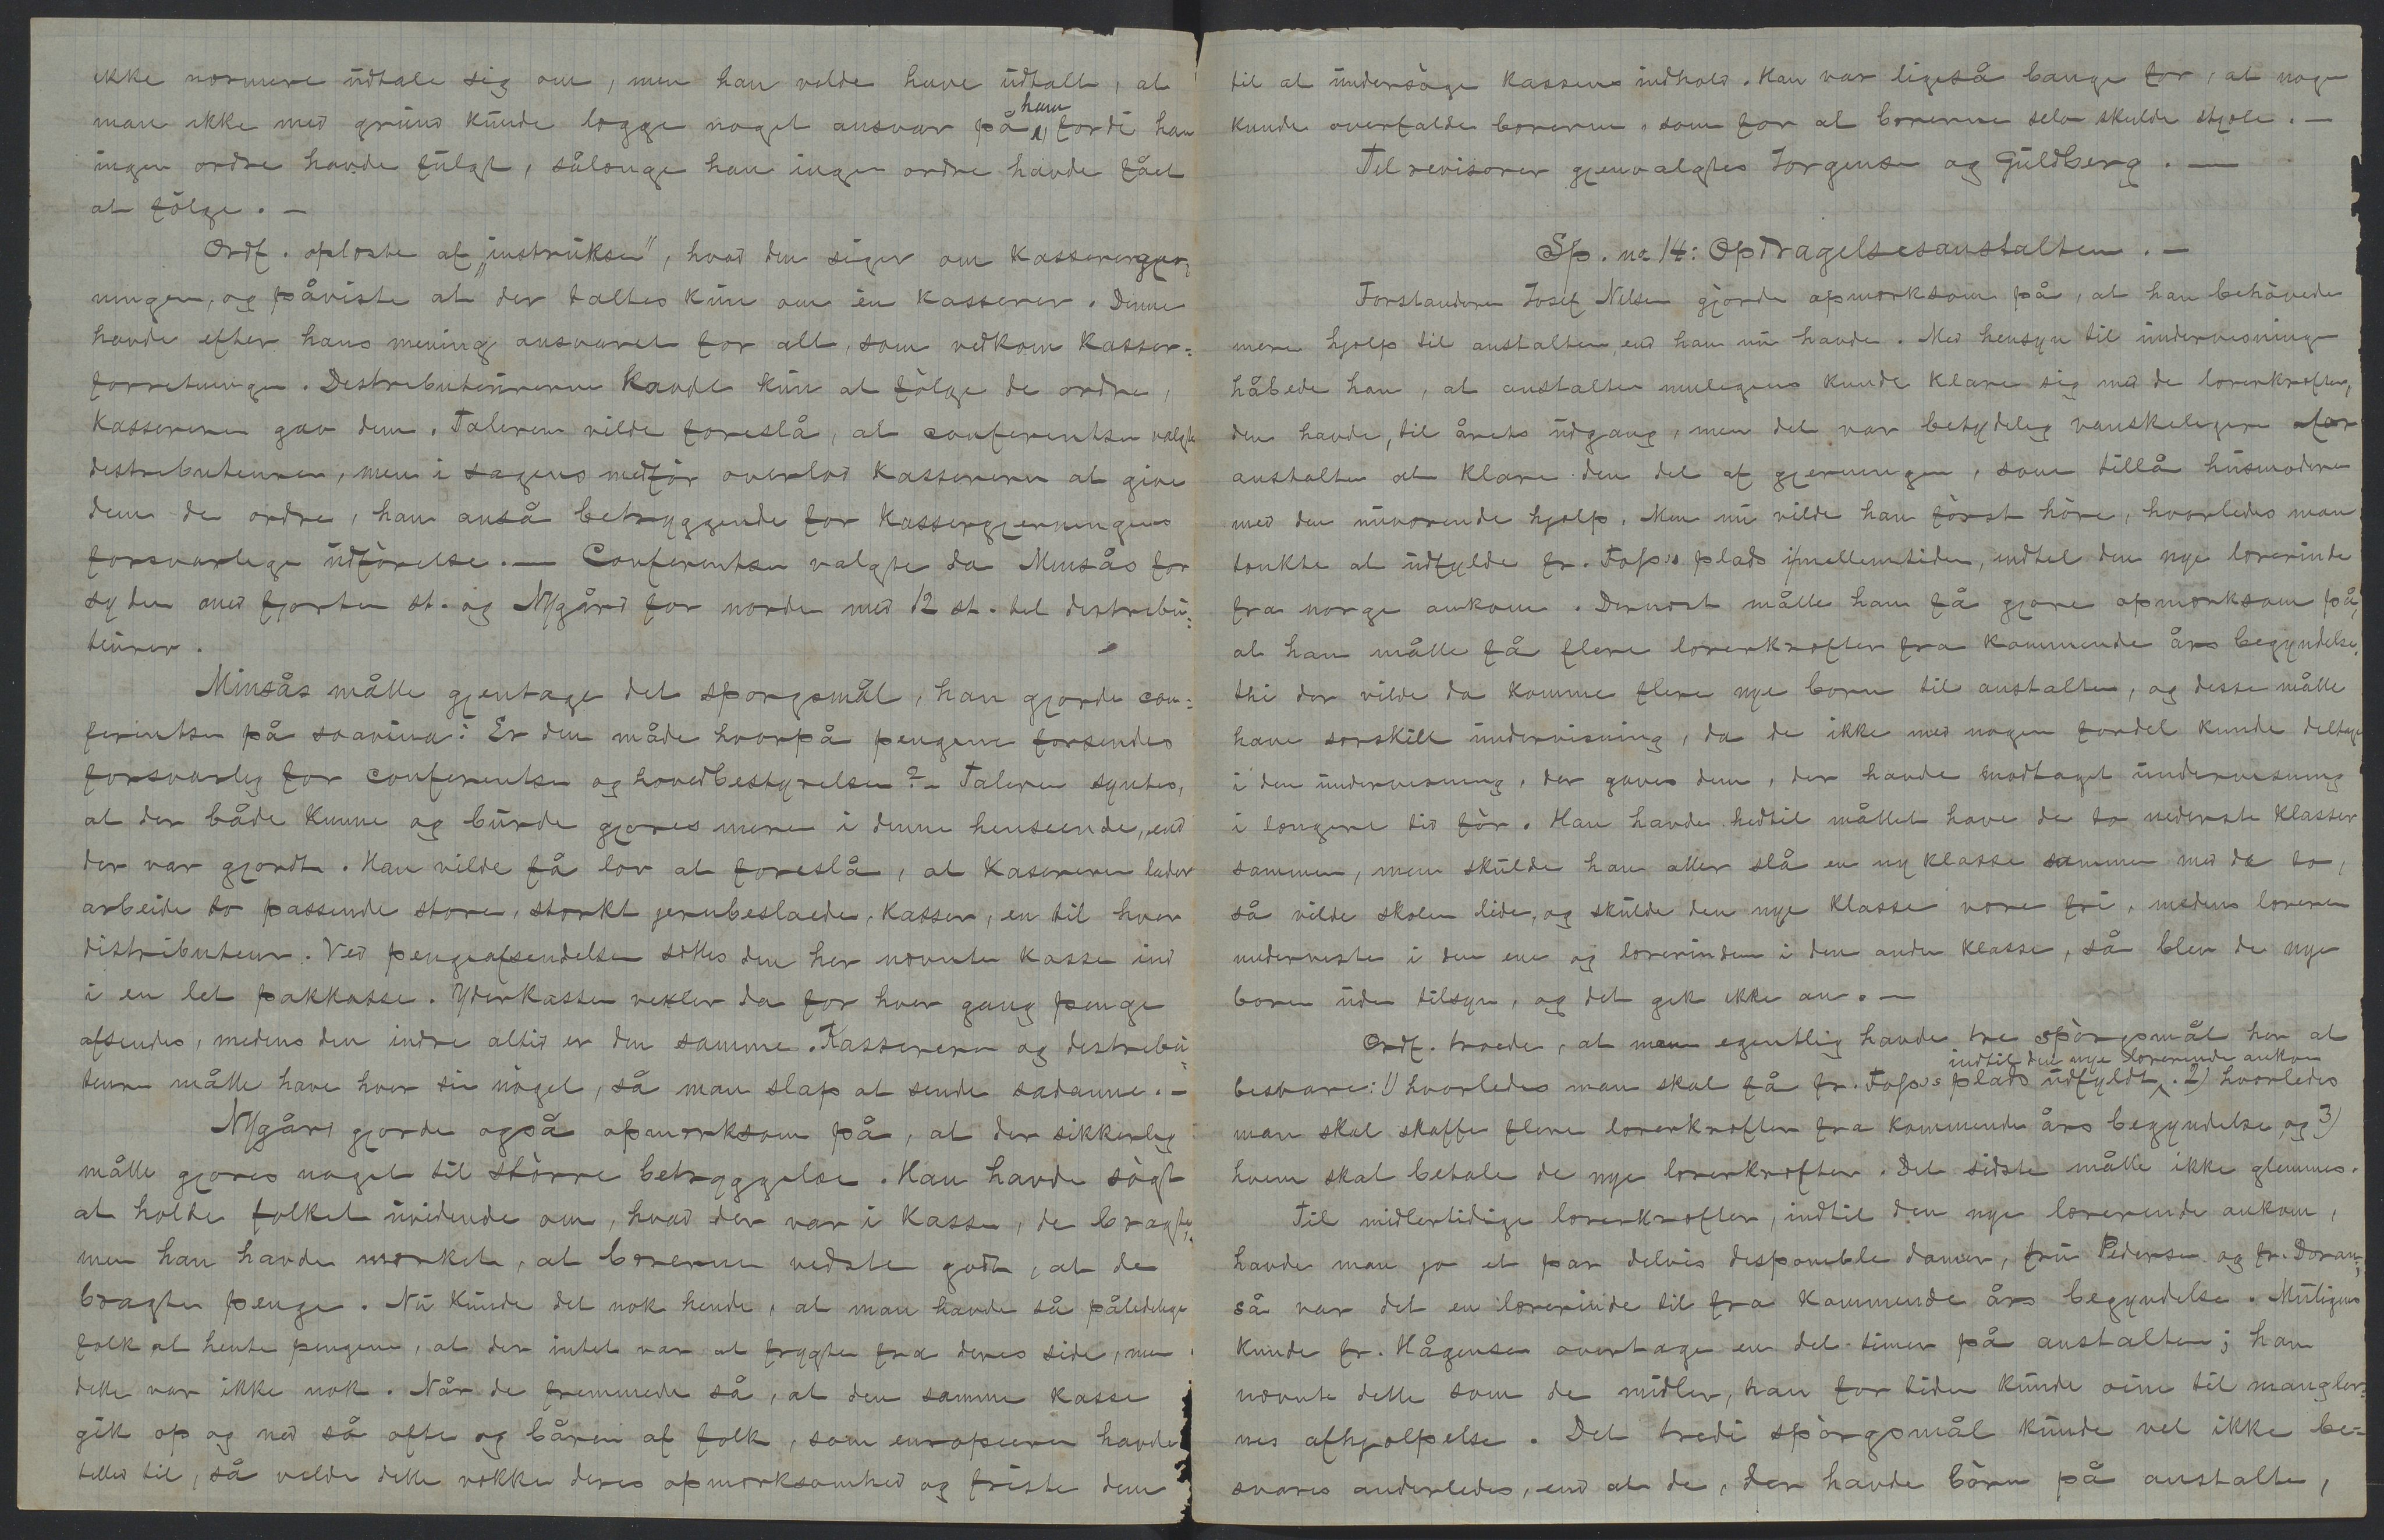 ikke nærmere udtale sig om, men han vilde have udtalt, at
man ikke med grund kunde lægge noget ansvar på ham fordi han
ingen ordre havde fulgt, sålænge han ingen ordre havde fået
at fölge. —
Ordf. oplæste af „instruksen", hvad den siger om kasserergjer¬
ningen, og påviste at der taltes kun om én kasserer. Denne
havde efter hans mening ansvaret for alt, som vedkom kasser=
forretningen. Distributeurerne havde kun at fölge de ordre,
kassereren gav dem. Taleren vilde foreslå, at conferentsen valgte
distributeurer, men i sagens medför overlod kassereren at give
dem de ordre, han anså betryggende for kassergjerningens
forsvarlige udförelse. — Conferentsen valgte da Minsås for
syden med fjorten st. og Nygård for norden med 12 st. til distribu=
teurer.
Minsås måtte gjentage det spørgsmål, han gjorde con=
ferentsen på soavina: Er den måde hvorpå pengene forsendes
forsvarlig for conferentsen og hovedbestyrelsen? – Taleren syntes,
at der både kunne og burde gjøres mere i denne henseende, end
der var gjordt. Han vilde få lov at foreslå, at kasereren lader
arbeide to passende store, stærkt jernbeslaede, kasser, en til hver
distributeur. Ved pengeafsendelsen sættes den her nævnte kasse ind
i en let pakkasse. Yderkassen vexler da for hver gang penge
afsendes, medens den indre altid er den samme. Kassereren og distribu=
teuren måtte have hver sin nögel, så man slap at sende sadanne. –
Nygård gjorde også opmærksom på, at der sikkerlig
måtte gjøres noget til större betryggelse. Han havde sögt
at holde folket uvidende om, hvad der var i kassen, de bragte,
men han havde mærket, at bærerne vidste godt, at de
bragte penge. Nu kunde det nok hende, at man havde så pålidelige
folk at hente pengene, at der intet var at frygte fra deres side, men
dette var ikke nok. Når de fremmede så, at den samme kasse
gik op og ned så ofte og båren af folk, som europæeren havde
tillid til, så vilde dette vække deres opmærksomhed og friste dem
til at undersöge kassens indhold. Han var ligeså bange for, at nogen
kunde overfalde bærerne, som for at bærerne selv skulde stjæle. —
Til revisorer gjenvalgtes Jørgensen og Guldberg. —
Sp. no 14: Opdragelsesanstalten. —
Forstanderen Josef Nilsen gjorde opmærksom på, at han behövede
mere hjælp til anstalten, end han nu havde. Med hensyn til undervisningen
håbede han, at anstalten muligens kunde klare sig med de lærerkræfter,
den havde, til årets udgang, men det var betydelig vanskeligere for
anstalten at klare den del af gjerningen, som tillå husmoderen
med den nuværende hjælp. Men nu vilde han först höre, hvorledes man
tænkte at udfylde fr. Foss's plads i mellemtiden, indtil den nye lærerinde
fra norge ankom. Dernæst måtte han få gjøre opmærksom på,
at han måtte få flere lærerkræfter fra kommende års begyndelse,
thi der vilde da komme flere nye børn til anstalten, og disse måtte
have særskilt undervisning, da de ikke med nogen fordel kunde deltage
i den undervisning, der gaves dem, der havde modtaget undervisning
i længere tid för. Han havde hidtil måttet have de to nederste klasser
sammen, men skulde han atter slå en ny klasse sammen med de to,
så vilde skolen lide, og skulde den nye klasse være fri, medens læreren
underviste i den ene og lærerinden i den anden klasse, så blev de nye
børn uden tilsyn, og det gik ikke an. —
Ordf. troede, at man egentlig havde tre spörgsmål her at
indtil den nye lærerinde ankom
besvare: 1) hvorledes man skal få fr. Foss's plads udfyldt. 2) hvorledes
man skal skaffe flere lærerkræfter fra kommende års begyndelse, og 3)
hvem skal betale de nye lærerkræfter. Det sidste måtte ikke glemmes.
Til midlertidige lærerkræfter, indtil den nye lærerinde ankom,
havde man jo et par delvis disponible damer, fru Pedersen og fr. Doran,
så var det en lærerinde til fra kommende års begyndelse. Muligens
kunde fr. Hågensen overtage en del timer på anstalten; han
nævnte dette som de midler, han for tiden kunde øine til mangler=
nes afhjælpelse. Det tredi spörgsmål kunde vel ikke be=
svares anderledes, end at de, der havde börn på anstalten,